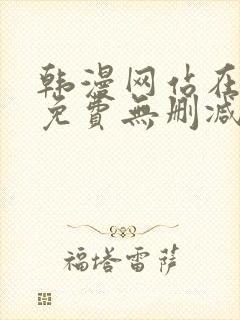 韩漫网站在
免費無删减
福塔雷萨